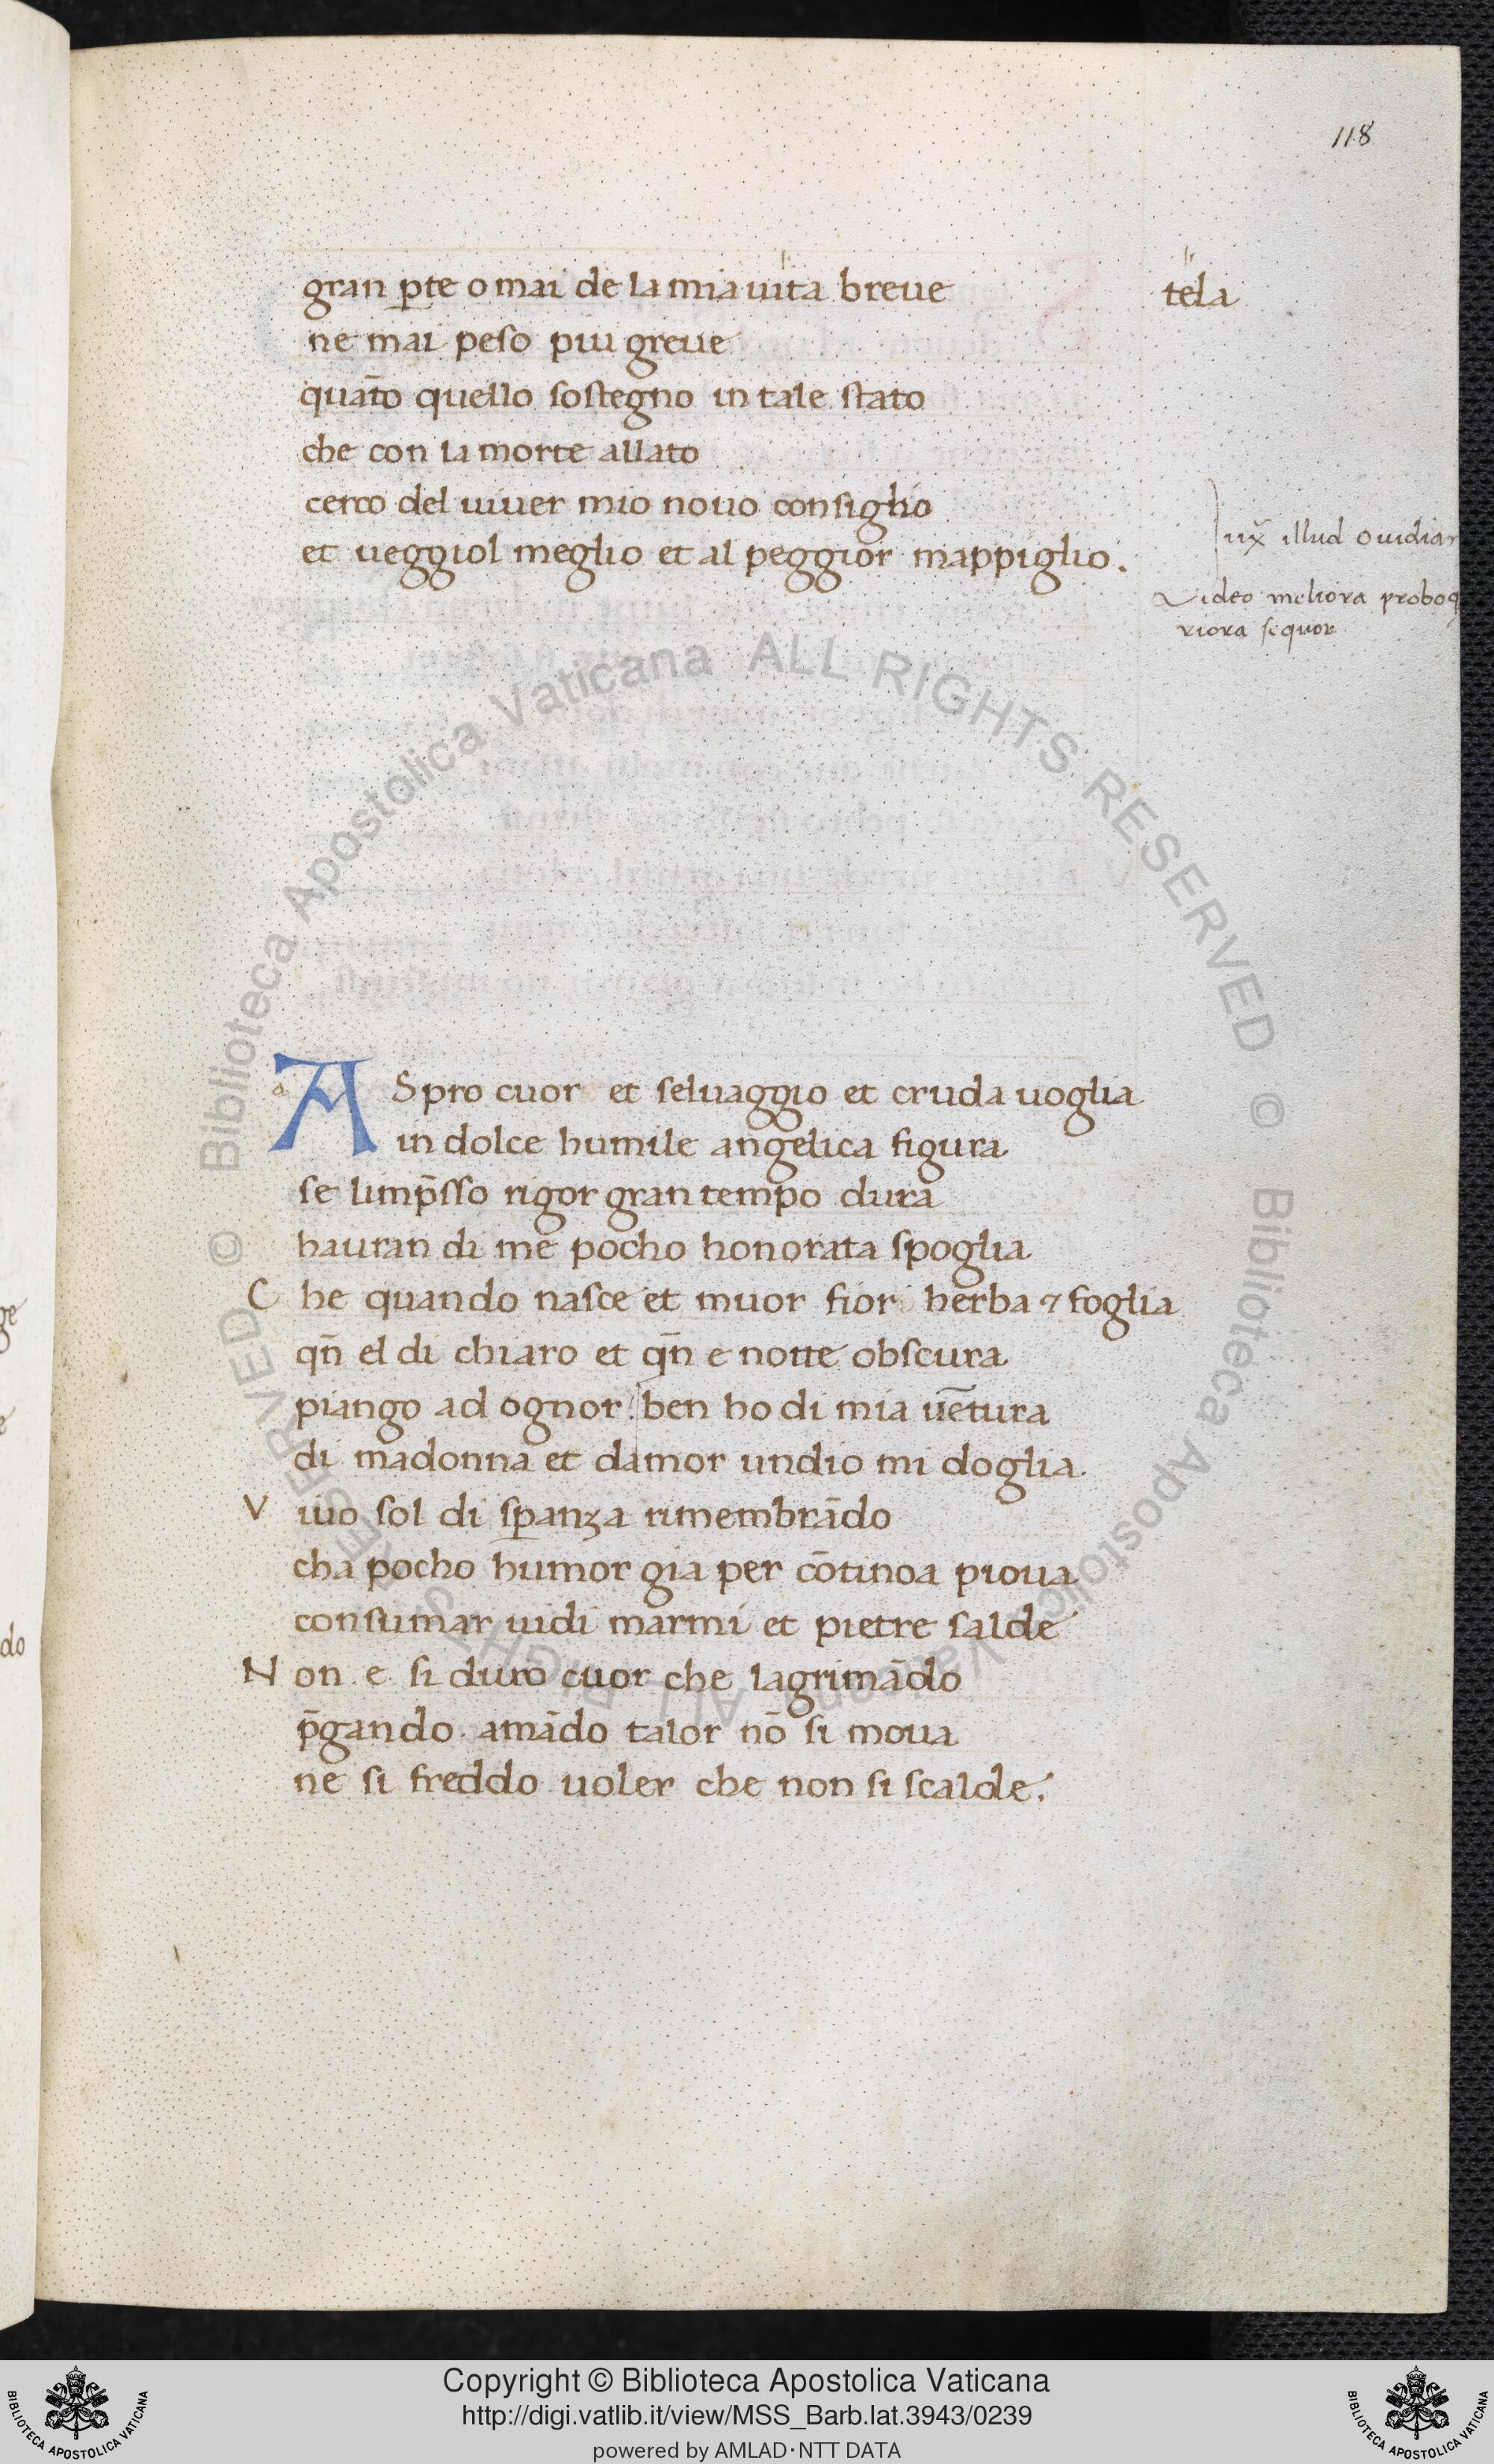 118
gran ꝑte o mai de la mia uita breue
tela
ne mai peso piu greue
quāto quello sostegno in tale stato
che con la morte allato
cerco del uiuer mio nouo consiglio
et ueggiol meglio et al peggior mappiglio.
Iux̄ illud ouidian
Video meliora proboq
riora sequor
ASpro cuor et seluaggio et cruda uoglia
in dolce humile angelica figura
se limp̄sso rigor gran tempo dura
hauran di me pocho honorata spoglia
Che quando nasce et muor fior herba ⁊ foglia
qn̄ el di chiaro et qn̄ e notte obscura
piango ad ognor. ben ho di mia uētura
di madonna et damor undio mi doglia
Viuo sol di sꝑanza rimembrādo
cha pocho humor gia per cōtinoa pioua
consumar uidi marmi et pietre salde
Non e si duro cuor che lagrimādo
p̄gando amādo talor nō si moua
ne si freddo uoler che non si scalde.
ge
e
do
Biblioteca Apostolica Vaticana ALL RIGHTS RESERVED ©
Biblioteca Apostolica Vaticana ALL RIGHTS RESERVED ©
Copyright © Biblioteca Apostolica Vaticana
http://digi.vatlib.it/view/MSS_Barb.lat.3943/0239
powered by AMLAD·NTT DATA
BIBLIOTECA APOSTOLICA VATICANA
BIBLIOTECA APOSTOLICA VATICANA